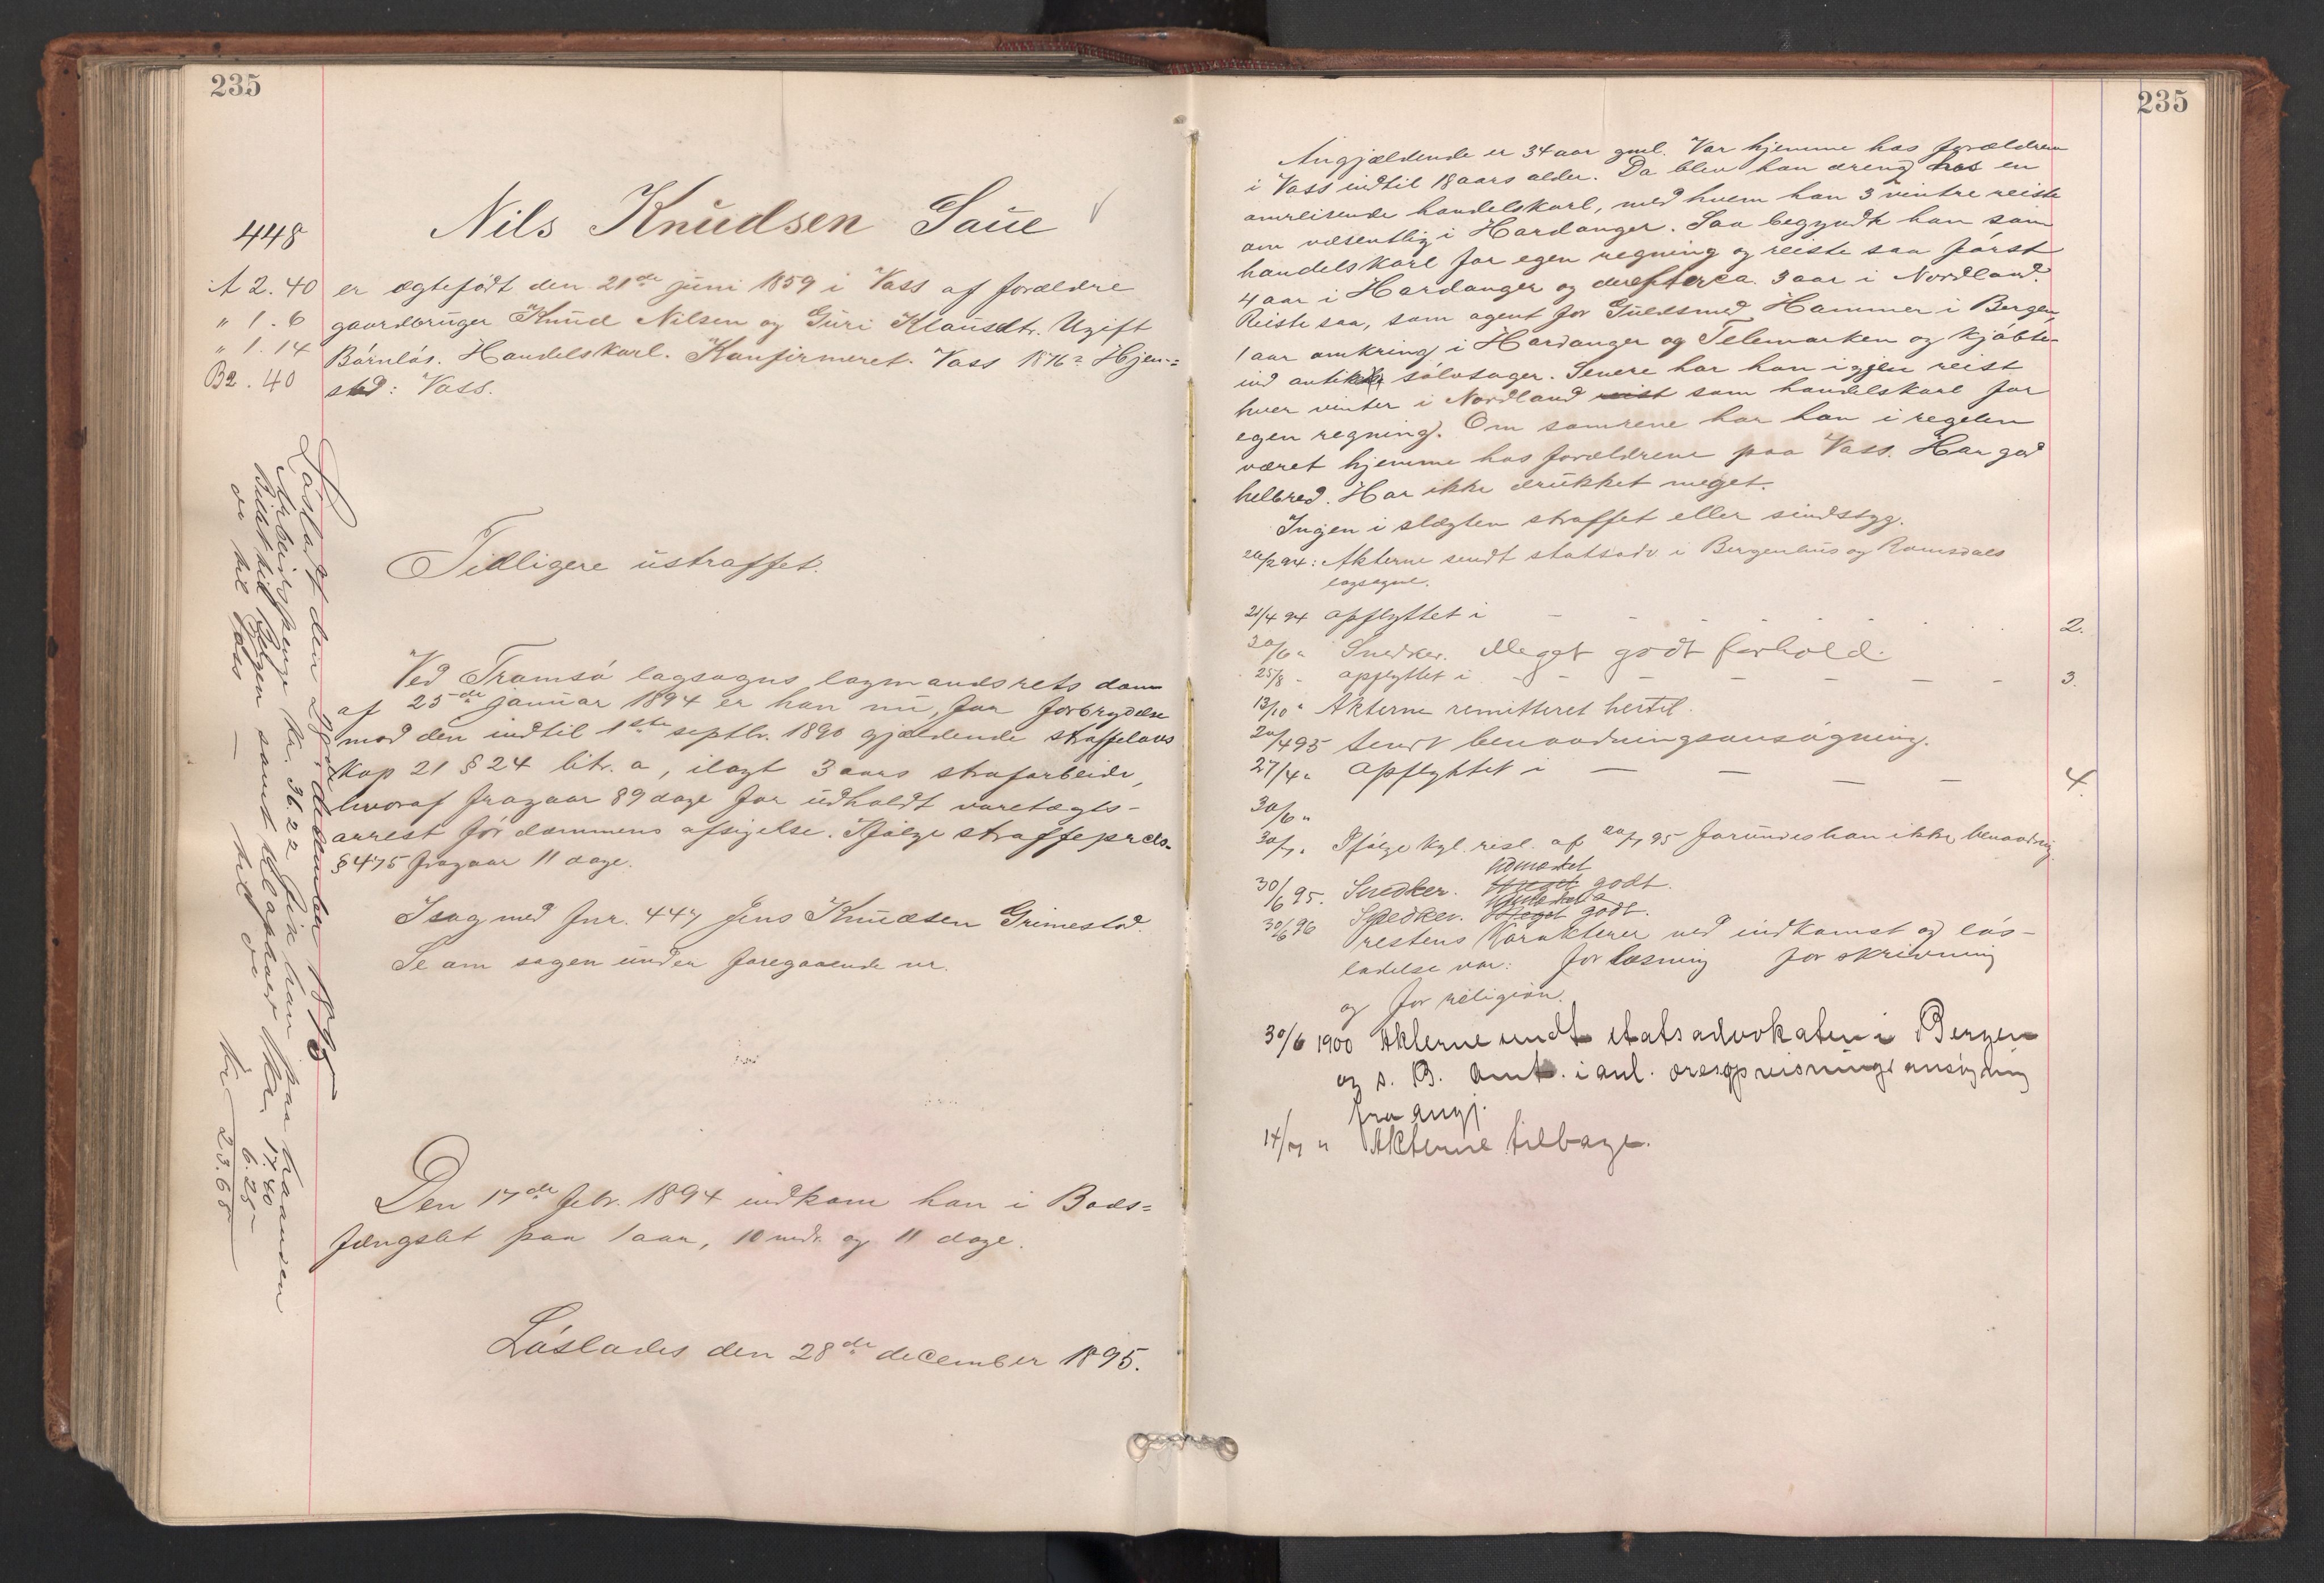 235
448
Nils Knudsen Saue
A 2. 40
" 1. 6
" 1. 14
B2. 40
er ægtefødt den 21de juni 1859 i Vass af forældre
gaardbruger Knud Nilsen og Guri Klausdtr. Ugift
Barnløs. Handelskarl. Konfirmeret. Vass 1876. Hjem-
sted: Vass.
Tidligere ustraffet.
Ved Tromsø lagsogns lagmandsrets dom
af 25de januar 1894 er han nu, for forbrydelse
mod den indtil 1ste septbr. 1890 gjældende straffelovs
Kap 21 § 24 litr. a, ilagt 3 aars strafarbeide,
hvoraf fragaar 89 dage for udholdt varetægts-
arrest før dommens afsigelse. Ifølge straffeprods.
§ 475 fragaar 11 dage.
I sag med fnr. 447 Jens Knudsen Grimestad.
Se om sagen under foregaaende nr.
Den 17de febr. 1894 indkom han i Bods-
fængslet paa 1 aar, 10 mdr. og 11 dage.
Løslades den 28de december 1895.
Løsladt den 28de december 1895
Arbeidspenge Kr. 36.22 fik han paa haanden
Billet til Bergen samt Kr. 17.40
do til Voss — 6.25
Kr. 23.65
235
Angjældende er 34 aar gml. Var hjemme hos forældrene
i Vass indtil 18 aars alder. Da blev han dreng hos en
omreisende handelskarl, med hvem han 3 vintre reiste
om væsentlig i Hardanger. Saa begyndte han som
handelskarl for egen regning og reiste saa først
4 aar i Hardanger og derefter ca. 3 aar i Nordland.
Reiste saa, som agent for Guldsmed Hammer i Bergen,
1 aar omkring i Hardanger og Telemarken og kjøbte
ind antike sølvsager. Senere har han igjen reist
hver vinter i Nordland reist som handelskarl for
egen regning. Om somrene har han i regelen
været hjemme hos forældrene paa Vass. Har god
helbred. Har ikke drukket meget.
Ingen i slægten straffet eller sindssyg.
20/2 94: Akterne sendt statsadv i Bergenhus og Romsdals
lagsogne.
21/4 94 opflyttet i — 2.
30/6 " Snedker. Meget godt forhold.
25/8 - opflyttet i — 3.
13/10 " Akterne remitteret hertil.
20/4 95 sendt benaadningsansøgning.
27/4 " opflyttet i — 4.
30/6 "
30/7 " Ifølge Kgl. resl. af 20/7 95 forundes han ikke benaadning.
30/6 95. Snedker. Meget Udmærket godt.
30/6 96 Snedker. Meget Udmærket godt.
restens Karakterer ved indkomst og løs-
ladelse var: for læsning for skrivning
og for religion.
30/6 1900 Akterne sendt statsadvokaten i Bergen
og s. B. Amt. i anl. æresopreisningsansøgning
fra angj.
14/7 " Akterne tilbage.